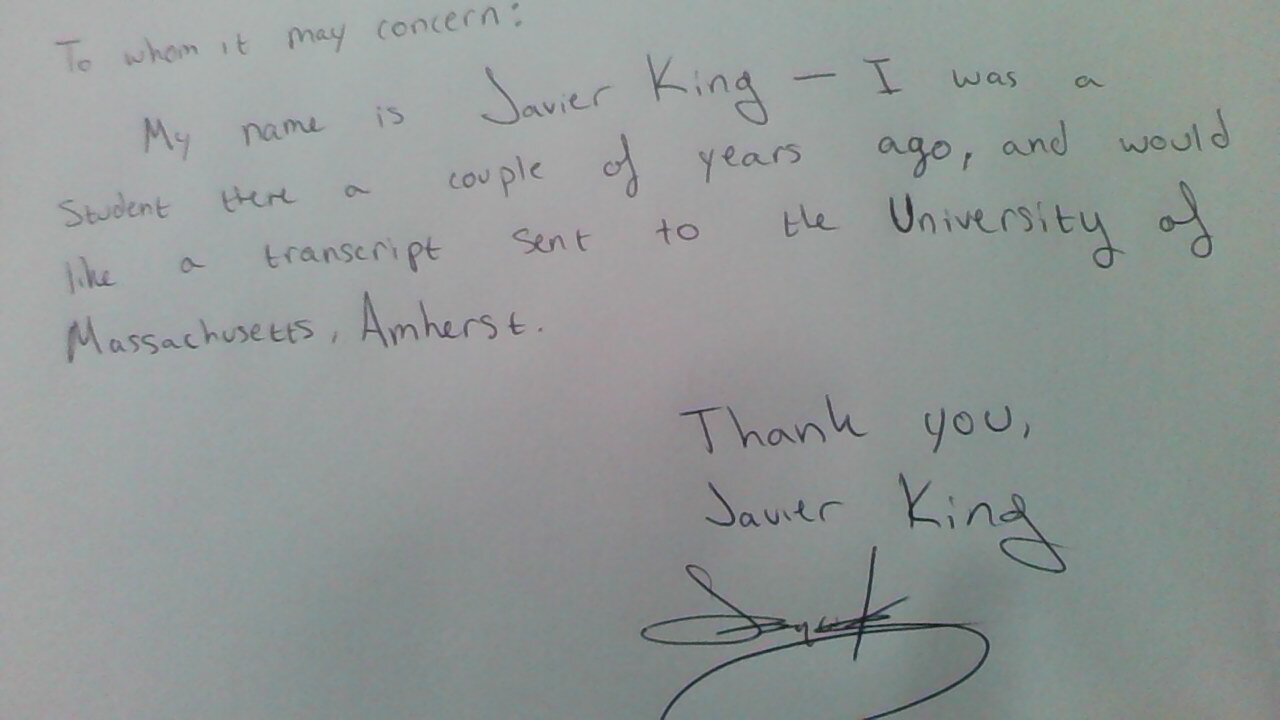 To whom it may concern:
My name is Javier King — I was a
student there a couple of years ago, and would
like a transcript sent to the University of
Massachusetts, Amherst.
Thank you,
Javier King